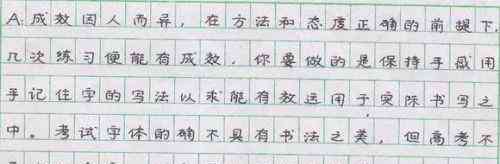 A.成效因人而异，在方法和态度正确的前提下，
几次练习便能有成效，你要做的是保持手感用
手记住字的写法以求能有效运用于实际书写之
中。考试字体的确不具有书法之美，但高考不